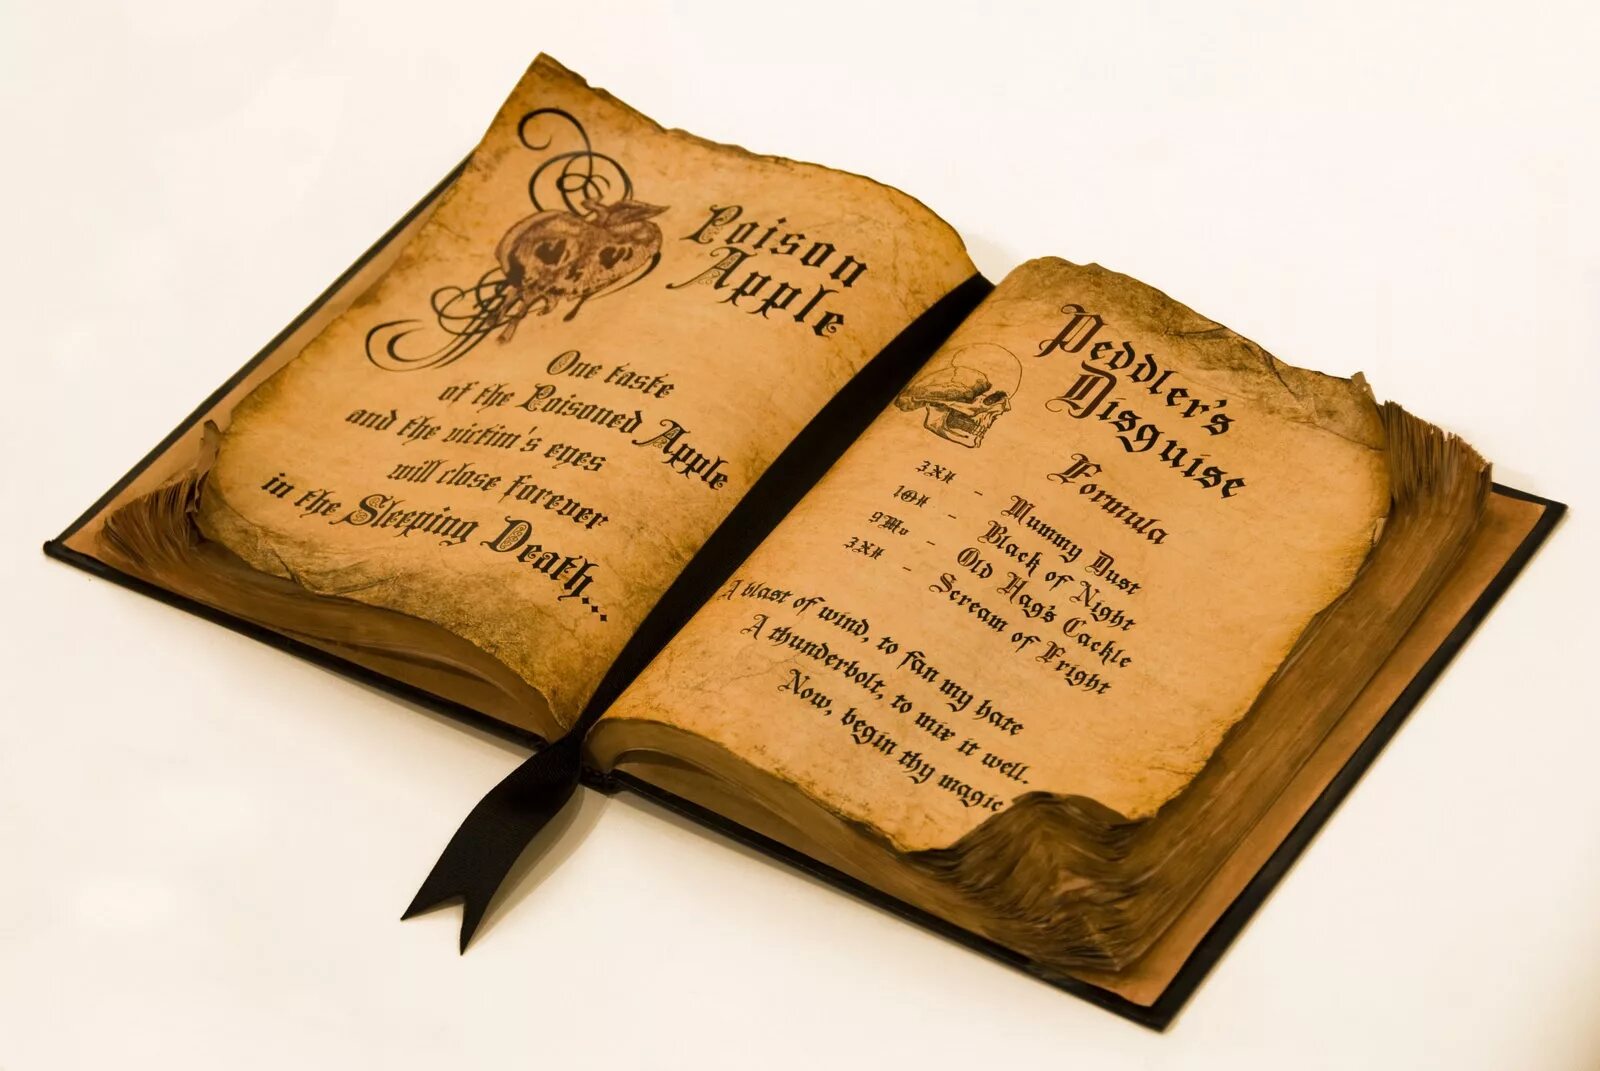 Poison
Apple
One taste
of the Poisoned Apple
and the victim's eyes
will close forever
in the Sleeping Death...
Peddler's
Disguise
Formula
- Mummy Dust
- Black of Night
- Old Hag's Cackle
- Scream of Fright
A blast of wind, to fan my hate
A thunderbolt, to mix it well.
Now, begin thy magic